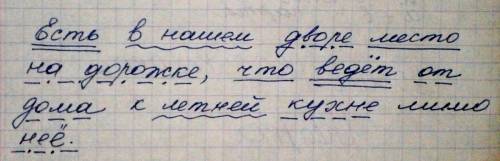 Есть в нашем дворе место
на дорожке, что ведёт от
дома к летней кухне мимо
неё.